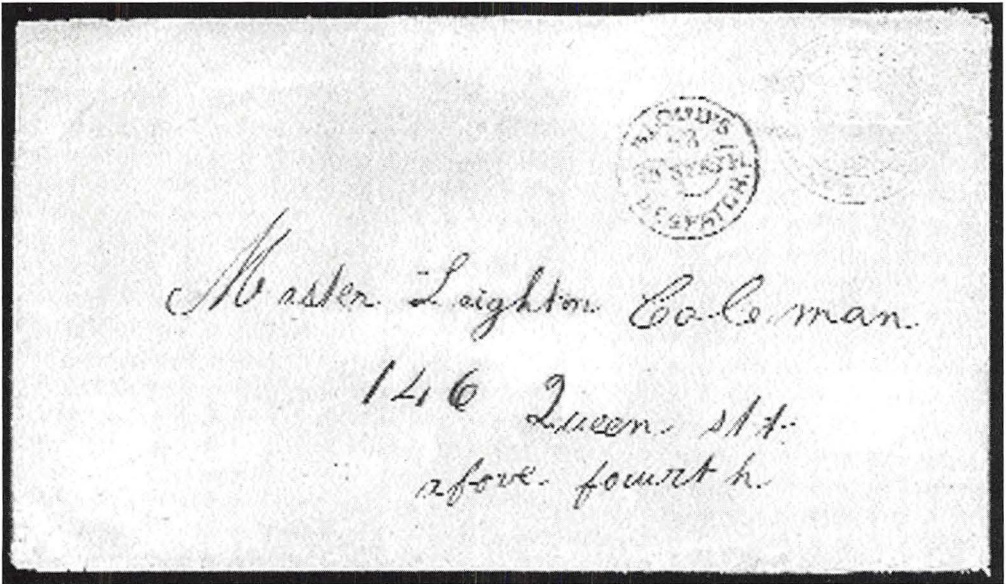 BLOOD'S
DESPATCH
Master Leighton Coleman
146 Queen stt.
above fourth